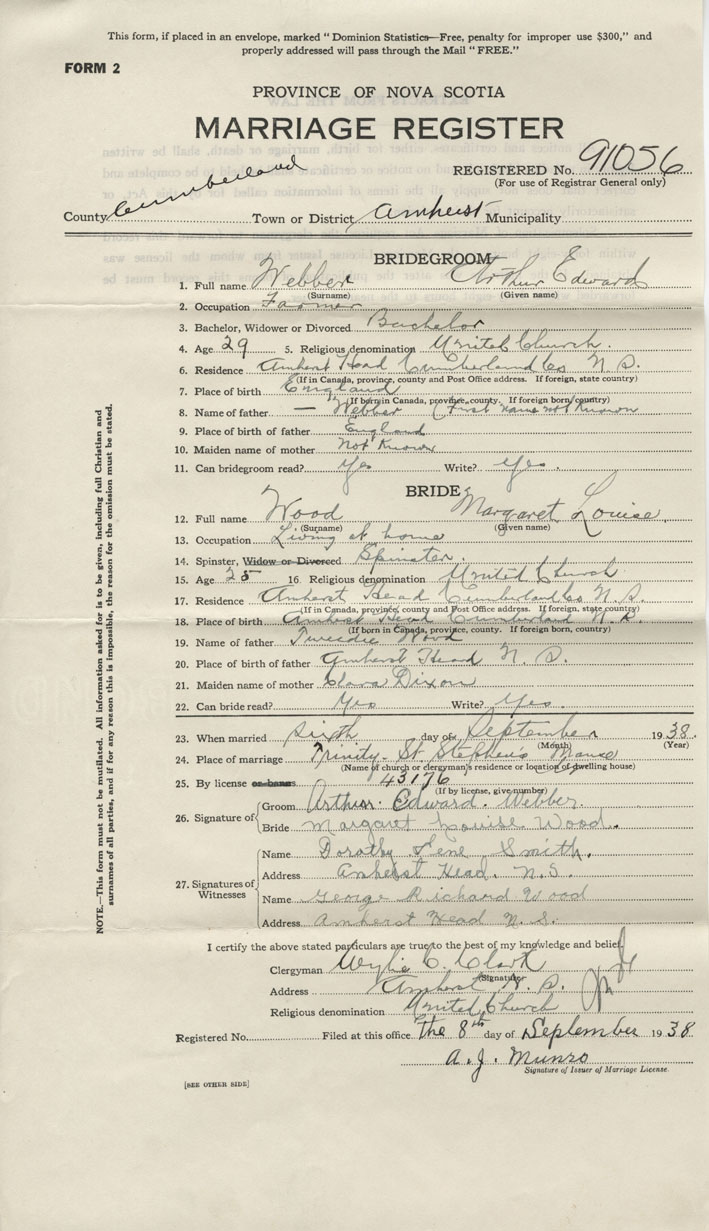 This form, if placed in an envelope, marked "Dominion Statistics—Free, penalty for improper use $300," and
properly addressed will pass through the Mail "FREE."
FORM 2
PROVINCE OF NOVA SCOTIA
MARRIAGE REGISTER
REGISTERED No. 91056
(For use of Registrar General only)
County Cumberland Town or District Amherst Municipality
BRIDEGROOM
1. Full name Webber Arthur Edward
(Surname) (Given name)
2. Occupation Farmer
3. Bachelor, Widower or Divorced Bachelor
4. Age 29 5. Religious denomination United Church.
6. Residence Amherst Head Cumberland Co N. S.
(If in Canada, province, county and Post Office address. If foreign, state country)
7. Place of birth England
(If born in Canada, province, county. If foreign born, country)
8. Name of father — Webber (First name not Known
9. Place of birth of father England
10. Maiden name of mother Not Known
11. Can bridegroom read? Yes Write? Yes.
BRIDE
12. Full name Wood Margaret Louise.
(Surname) (Given name)
13. Occupation Living at home
14. Spinster, Widow or Divorced Spinster.
15. Age 25 16. Religious denomination United Church
17. Residence Amherst Head Cumberland Co N. S.
(If in Canada, province, county and Post Office address. If foreign, state country)
18. Place of birth Amherst Head Cumberland N. S.
(If born in Canada, province, county. If foreign born, country)
19. Name of father Tweedie Wood
20. Place of birth of father Amherst Head N. S.
21. Maiden name of mother Clara Dixon
22. Can bride read? Yes Write? Yes.
23. When married sixth day of September 1938.
(Month) (Year)
24. Place of marriage Trinity-St Stephen's Manse
(Name of church or clergyman's residence or location of dwelling house)
25. By license or banns 43176
(If by license, give number)
26. Signature of
Groom Arthur Edward Webber.
Bride Margaret Louise Wood.
27. Signatures of Witnesses
Name Dorothy Smith.
Address Amherst Head. N.S.
Name George Richard Wood
Address Amherst Head N. S.
I certify the above stated particulars are true to the best of my knowledge and belief.
Clergyman Wylie C. Clark
(Signature)
Address Amherst N. S.
Religious denomination United Church
Registered No. Filed at this office the 8th day of September 1938
A. J. Munro
Signature of Issuer of Marriage License.
[SEE OTHER SIDE]
NOTE.—This form must not be mutilated. All information asked for is to be given, including full Christian and
surnames of all parties, and if for any reason this is impossible, the reason for the omission must be stated.